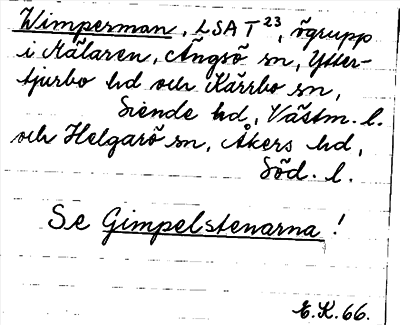 Wimperman, LSA T²³, ögrupp
i Mälaren, Ängsö sn, Ytter-
tjurbo hd och Kärrbo sn,
Siende hd, Västm. l.
och Helgarö sn, Åkers hd,
Söd. l.
Se Gimpelstenarna!
E.K. 66.